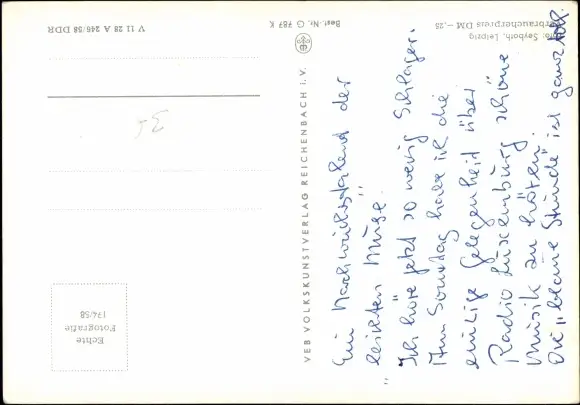 Ein Nachwuchstalent der
leichten Muse.
Ich höre jetzt so wenig Schlager.
Am Sonntag habe ich die
einzige Gelegenheit über
Radio Luxemburg schöne
Musik zu hören.
Die "blaue Stunde" ist ganz toll.
VEB VOLKSKUNSTVERLAG REICHENBACH I. V.
Foto: Seyboth, Leipzig
Verbraucherpreis DM –,25
Best.-Nr. G 787 K
V 11 28 A 246/58 DDR
Echte
Fotografie
174/58